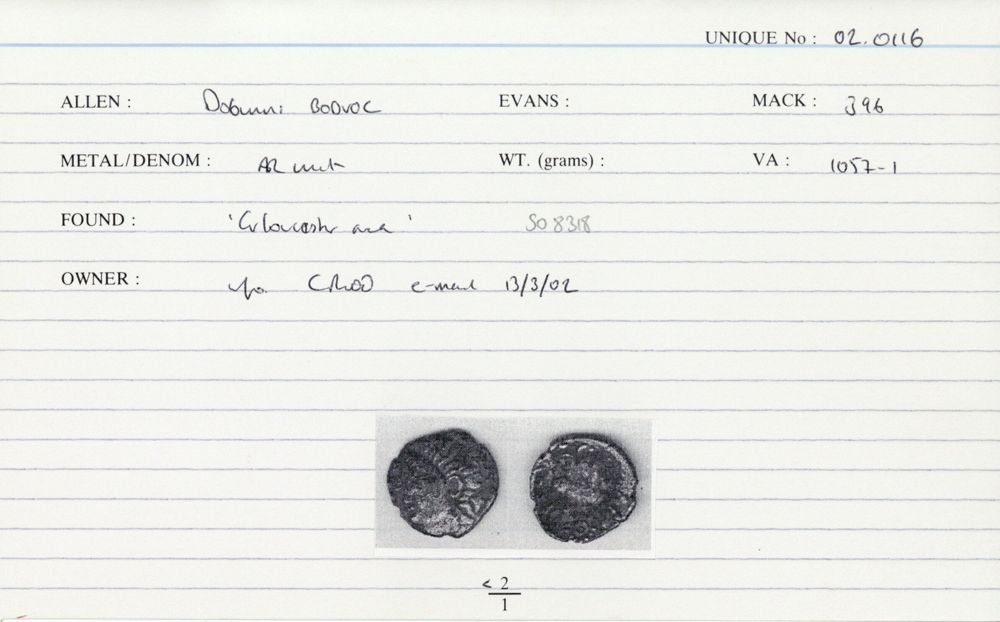 UNIQUE No : 02.0116
ALLEN : Dobunni BODVOC EVANS : MACK : 396
METAL/DENOM : AR unit WT. (grams) : VA : 1057-1
FOUND : 'Gloucester area' SO 8318
OWNER : CR00 e-mail 13/3/02
< 2
1